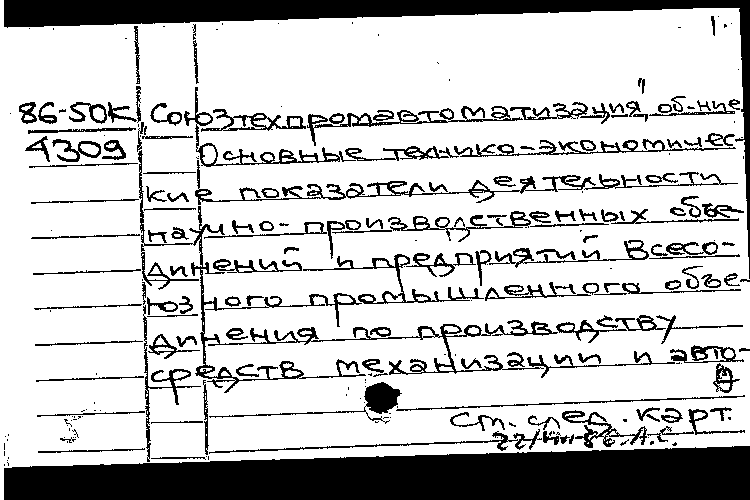 1.
86-50К "Союзтехпромавтоматизация", об-ние
4309 Основные технико-экономичес-
кие показатели деятельности
научно-производственных объе-
динений и предприятий Всесо-
юзного промышленного объе-
динения по производству
средств механизации и авто-
См. след. карт.
22/VIII-86. А.С.